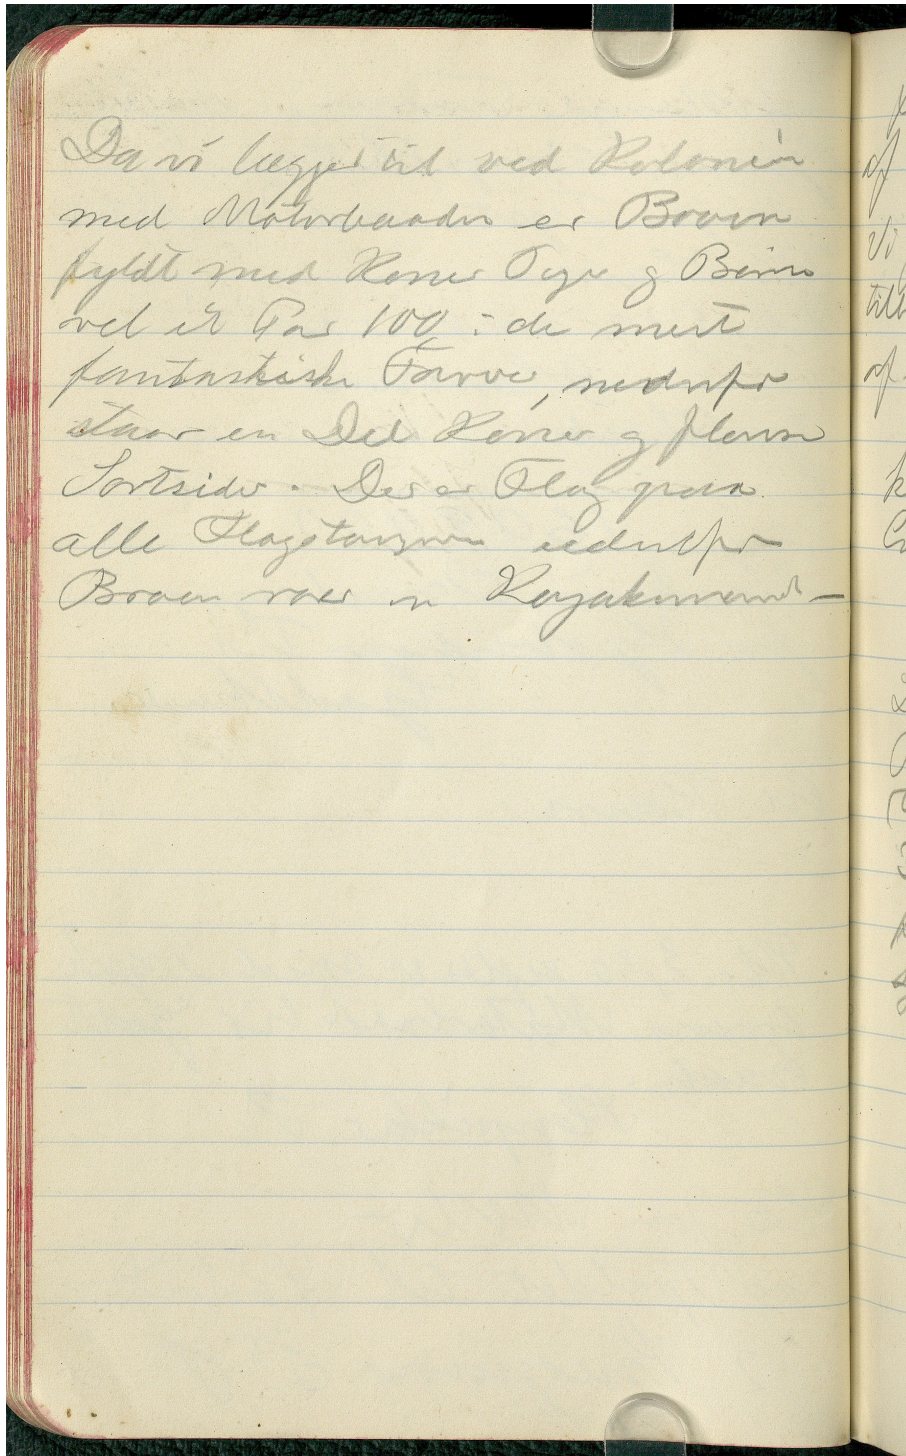 Da vi lægger til ved Kolonien
med Motorbaaden er Broen
fyldt med Koner Piger og Børn
vel et Par 100 i de mest
fantastiske Farver, nedenfor
staar en Del Koner og flense
Sortsider. Der er Flag paa
alle Flagstænger udenfor
Broen roer en Kajakmand –